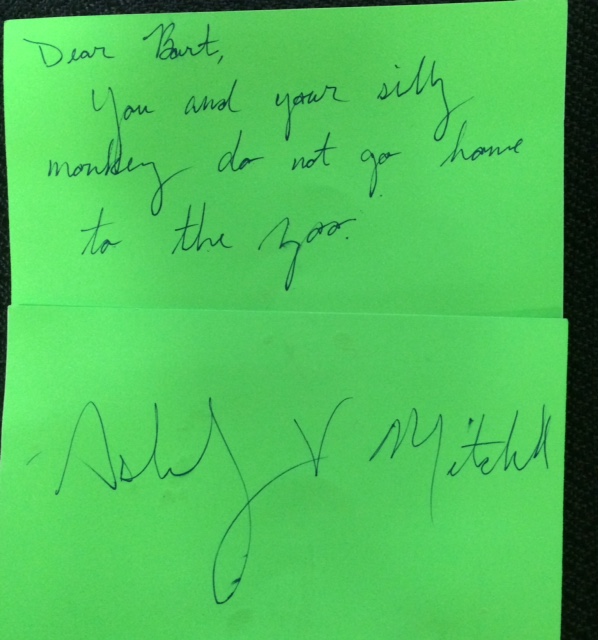 Dear Bart,
You and your silly
monkey do not go home
to the zoo.
- Ashley V Mitchell